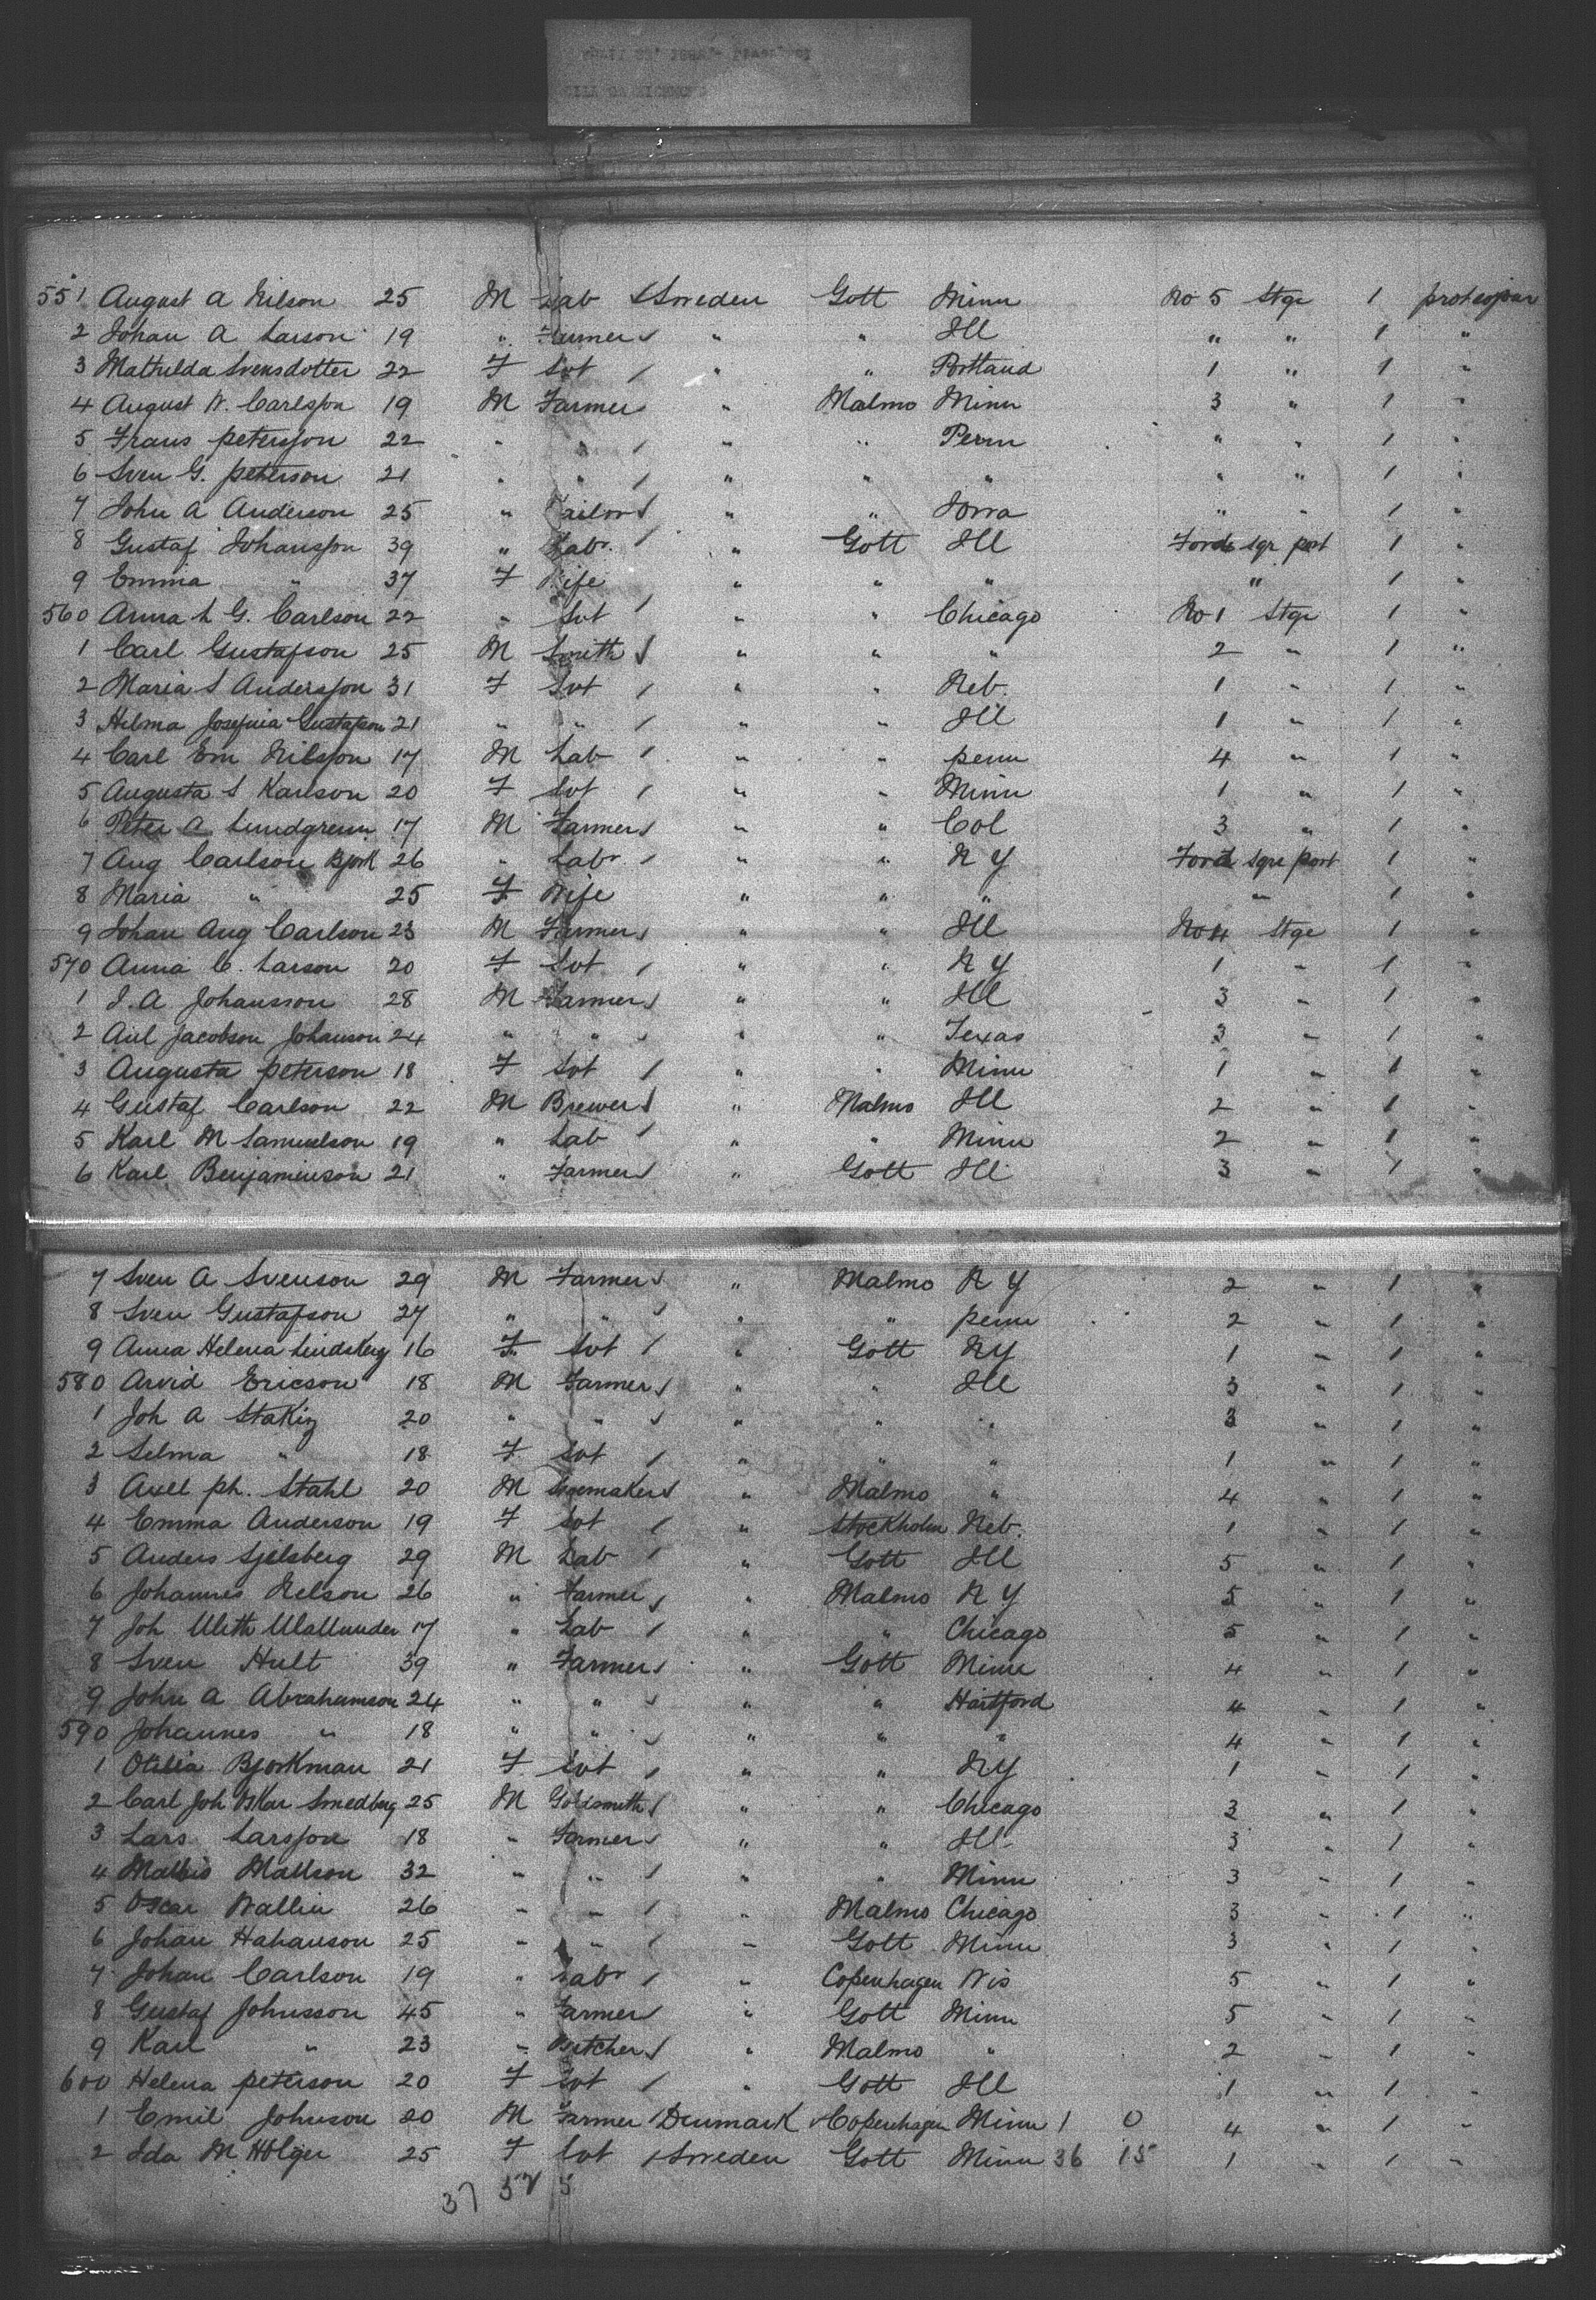 551 August A Nilson 25 M Lab / Sweden Gott Minn No 5 Stge 1 protcopar
2 Johan A Larson 19 " Farmer / " " Ill " " 1 "
3 Mathilda Svensdotter 22 F Svt / " " Portland 1 " 1 "
4 August W. Carlsson 19 M Farmer " Malmo Minn 3 " 1 "
5 Frans petersson 22 " " / " " Penn " " 1 "
6 Sven G. peterson 21 " " / " " " " " 1 "
7 John A Anderson 25 " Tailor / " " Iowa " " 1 "
8 Gustaf Johansson 39 " Labr / " Gott Ill Ford sgr port 1 "
9 Emma " 37 F Wife " " " " 1 "
560 Anna L G. Carlson 22 " Svt / " " Chicago No 1 Stge 1 "
1 Carl Gustafson 25 M Smith / " " " 2 " 1 "
2 Maria S Andersson 31 F Svt / " " Neb. 1 " 1 "
3 Hilma Josefina Gustafson 21 " " / " " Ill 1 " 1 "
4 Carl Em Nilsson 17 M Lab / " " penn 4 " 1 "
5 Augusta S Karlson 20 F Svt / " " Minn 1 " 1 "
6 Peter A Lundgrenn 17 M Farmer / " " Col 3 " 1 "
7 Aug Carlson Bjork 26 " Labr / " " N Y Ford sgre port 1 "
8 Maria " 25 F Wife " " " " 1 "
9 Johan Aug Carlson 23 M Farmer / " " Ill No 4 Stge 1 "
570 Anna C. Larson 20 F Svt / " " N Y 1 " 1 "
1 J. A Johansson 28 M Farmer / " " Ill 3 " 1 "
2 Jacobson Johanson 24 " " / " " Texas 3 " 1 "
3 Augusta peterson 18 F Svt / " " Minn 1 " 1 "
4 Gustaf Carlson 22 M Brewer / " Malmo Ill 2 " 1 "
5 Karl M Samuelson 19 " Lab / " " Minn 2 " 1 "
6 Karl Benjaminson 21 " Farmer / " Gott Ill 3 " 1 "
7 Sven A Svenson 29 M Farmer / " Malmo N Y 2 " 1 "
8 Sven Gustafson 27 " " / " " penn 2 " 1 "
9 Anna Helena Lindsberg 16 F Svt / " Gott N Y 1 " 1 "
580 Arvid Ericson 18 M Farmer / " " Ill 3 " 1 "
1 Joh A Stakig 20 " " / " " " 3 " 1 "
2 Selma " 18 F Svt / " " " 1 " 1 "
3 Axel ph. Stahl 20 M Shoemaker / " Malmo " 4 " 1 "
4 Emma Anderson 19 F Svt / " Stockholm Neb. 1 " 1 "
5 Anders Sjelsberg 29 M Lab / " Gott Ill 5 " 1 "
6 Johannes Nelson 26 " Farmer / " Malmo N Y 5 " 1 "
7 Joh 17 " Lab / " " Chicago 5 " 1 "
8 Sven Hult 39 " Farmer / " Gott Minn 4 " 1 "
9 John A Abrahamson 24 " " / " " Hartford 4 " 1 "
590 Johannes " 18 " " / " " " 4 " 1 "
1 Otilia Bjorkman 21 F Svt / " " N Y 1 " 1 "
2 Carl Joh Oskar Smedberg 25 M Goldsmith / " " Chicago 3 " 1 "
3 Lars Larsson 18 " Farmer / " " Ill 3 " 1 "
4 Mattis Mattson 32 " " / " " Minn 3 " 1 "
5 Oscar Wallin 26 " " / " Malmo Chicago 3 " 1 "
6 Johan Hahanson 25 " " / " Gott Minn 3 " 1 "
7 Johan Carlson 19 " Labr / " Copenhagen Wis 5 " 1 "
8 Gustaf Johnsson 45 " Farmer / " Gott Minn 5 " 1 "
9 Karl " 23 " Butcher / " Malmo " 2 " 1 "
600 Helena peterson 20 F Svt / " Gott Ill 1 " 1 "
1 Emil Johnson 20 M Farmer / Denmark Copenhagen Minn 1 0 4 " 1 "
2 Ida M Holger 25 F Svt / Sweden Gott Minn 36 15 1 " 1 "
37 52 5